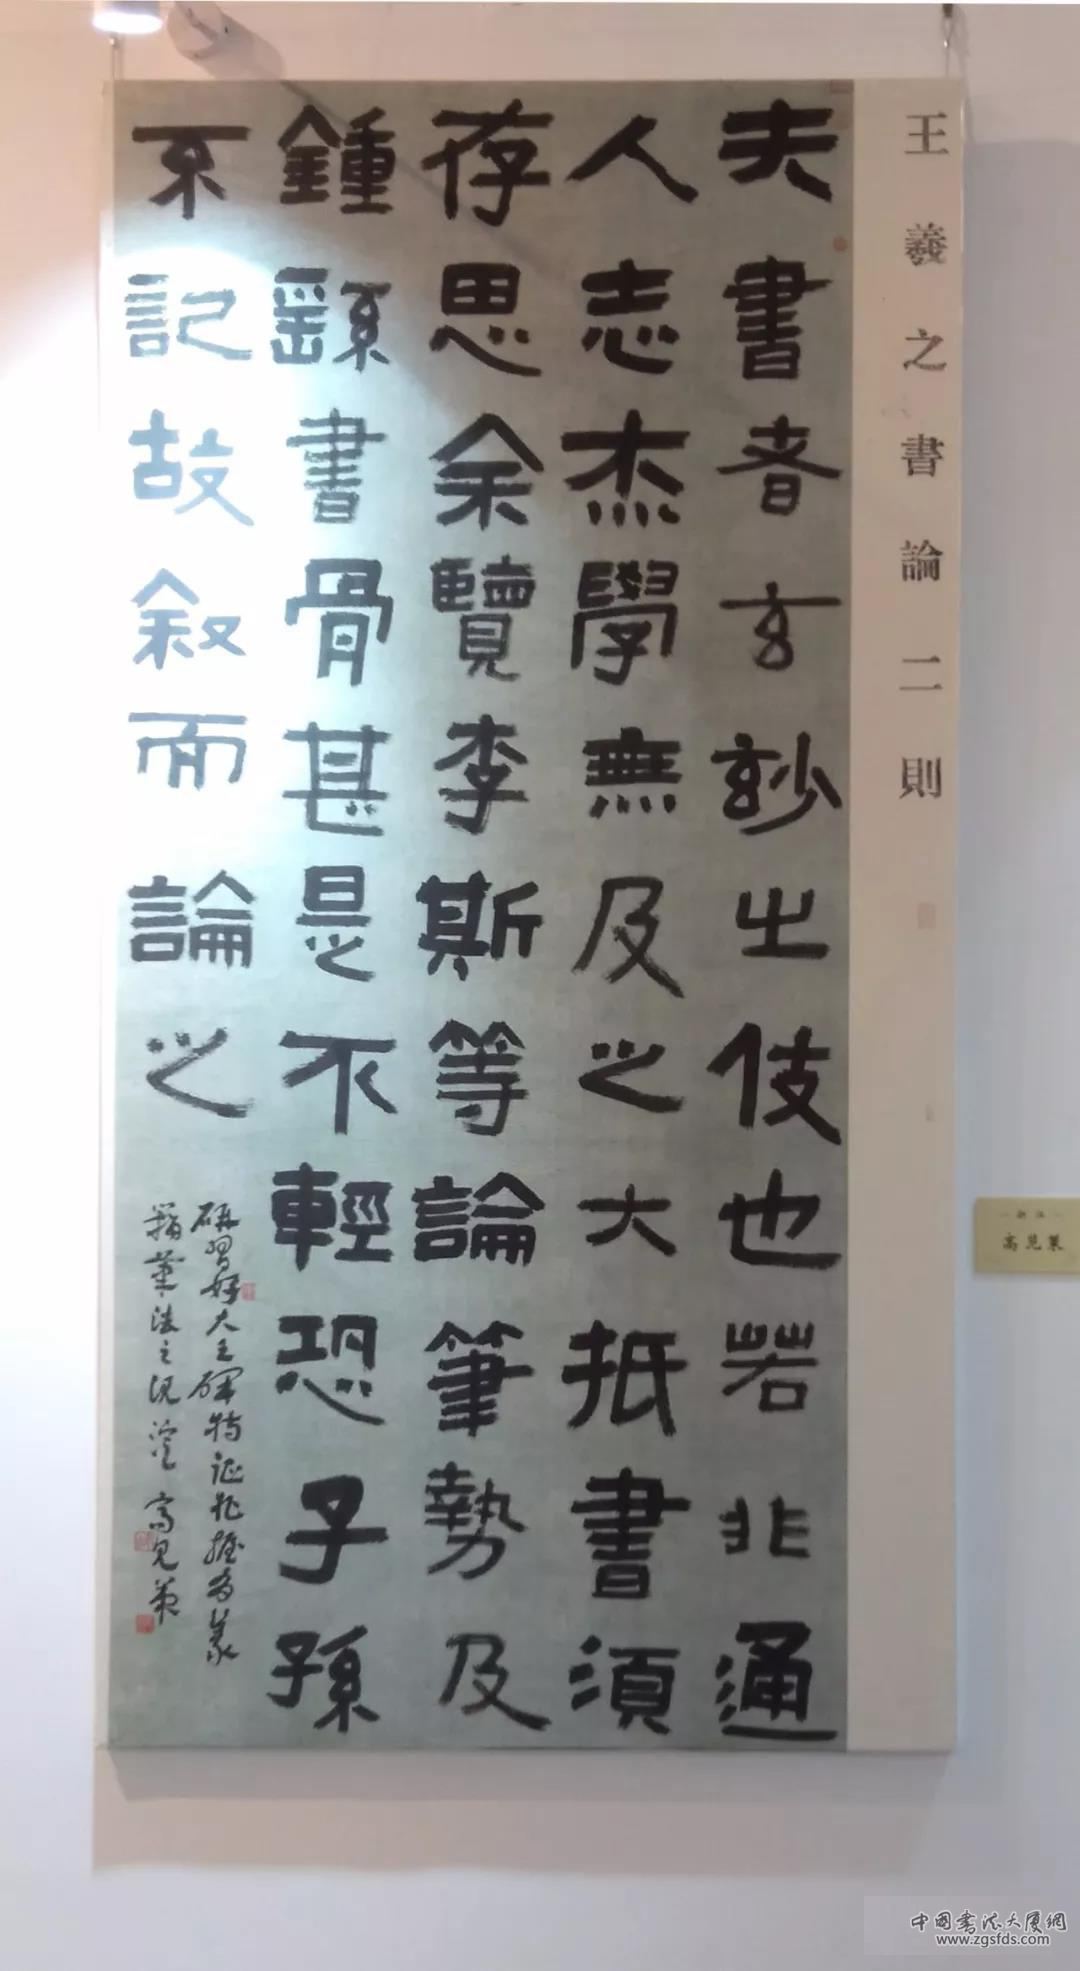 王羲之書論二則
夫書者玄妙之伎也若非通
人志杰學無及之大抵書須
存思余覽李斯等論筆勢及
鍾繇書骨甚是不輕恐子孫
不記故叙而論之
研習好大王碑特征把握多篆
籀筆法之現 高見策
高見策
中國書法大廈網
www.zgsfds.com